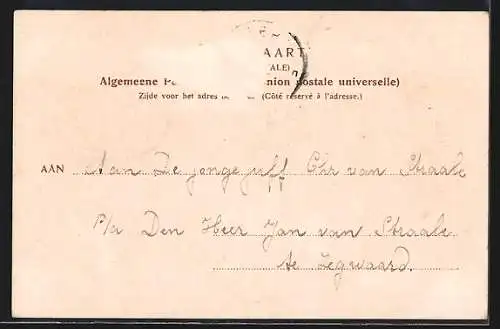 AART
ALE)
Algemene P nion postale universelle)
Zijde voor het adres (Côté réservé à l'adresse.)
AAN Aan De jonge juff Chr van Straale
P/a Den Heer Jan van Straale
te Zegwaard.